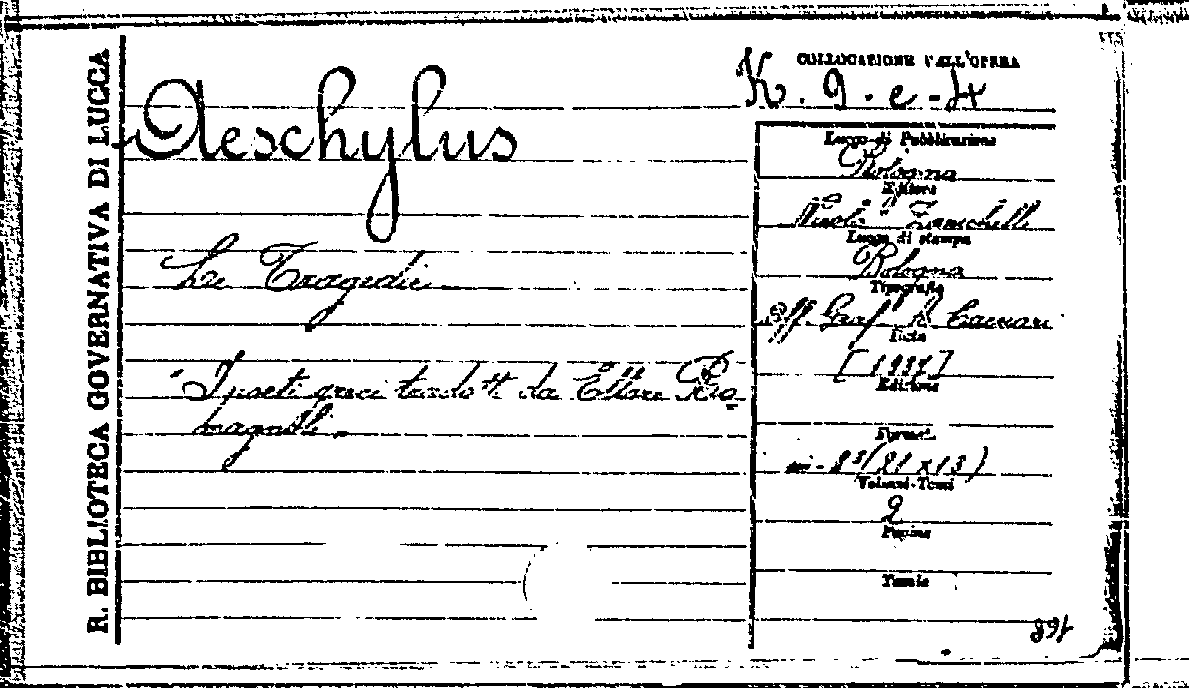 R. BIBLIOTECA GOVERNATIVA DI LUCCA
Aeschylus
Le Tragedie
I poeti greci tradotti da Ettore Ro-
magnoli.
COLLOCAZIONE DALL'OPERA
K. 9. e-4
Luogo di Pubblicazione
Bologna
Editore
Nicola Zanichelli
Luogo di stampa
Bologna
Tipografia
Off. Graf. Cacciari
Data
Edizione
Format.
in-8°(21 x 13)
Volumi-Tomi
2
Pagine
Tavole